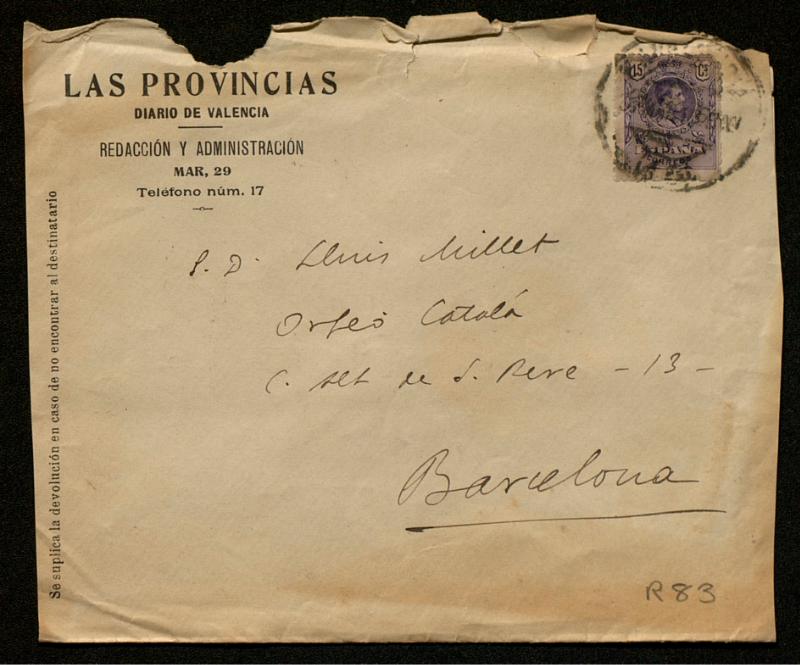 LAS PROVINCIAS
DIARIO DE VALENCIA
REDACCIÓN Y ADMINISTRACIÓN
MAR, 29
Teléfono núm. 17
Se suplica la devolución en caso de no encontrar al destinatario
15 Cs
ESPAÑA
CORREOS
S. D. Lluis Millet
Orfeó Catalá
C. Alt de S. Pere - 13 -
Barcelona
R 83